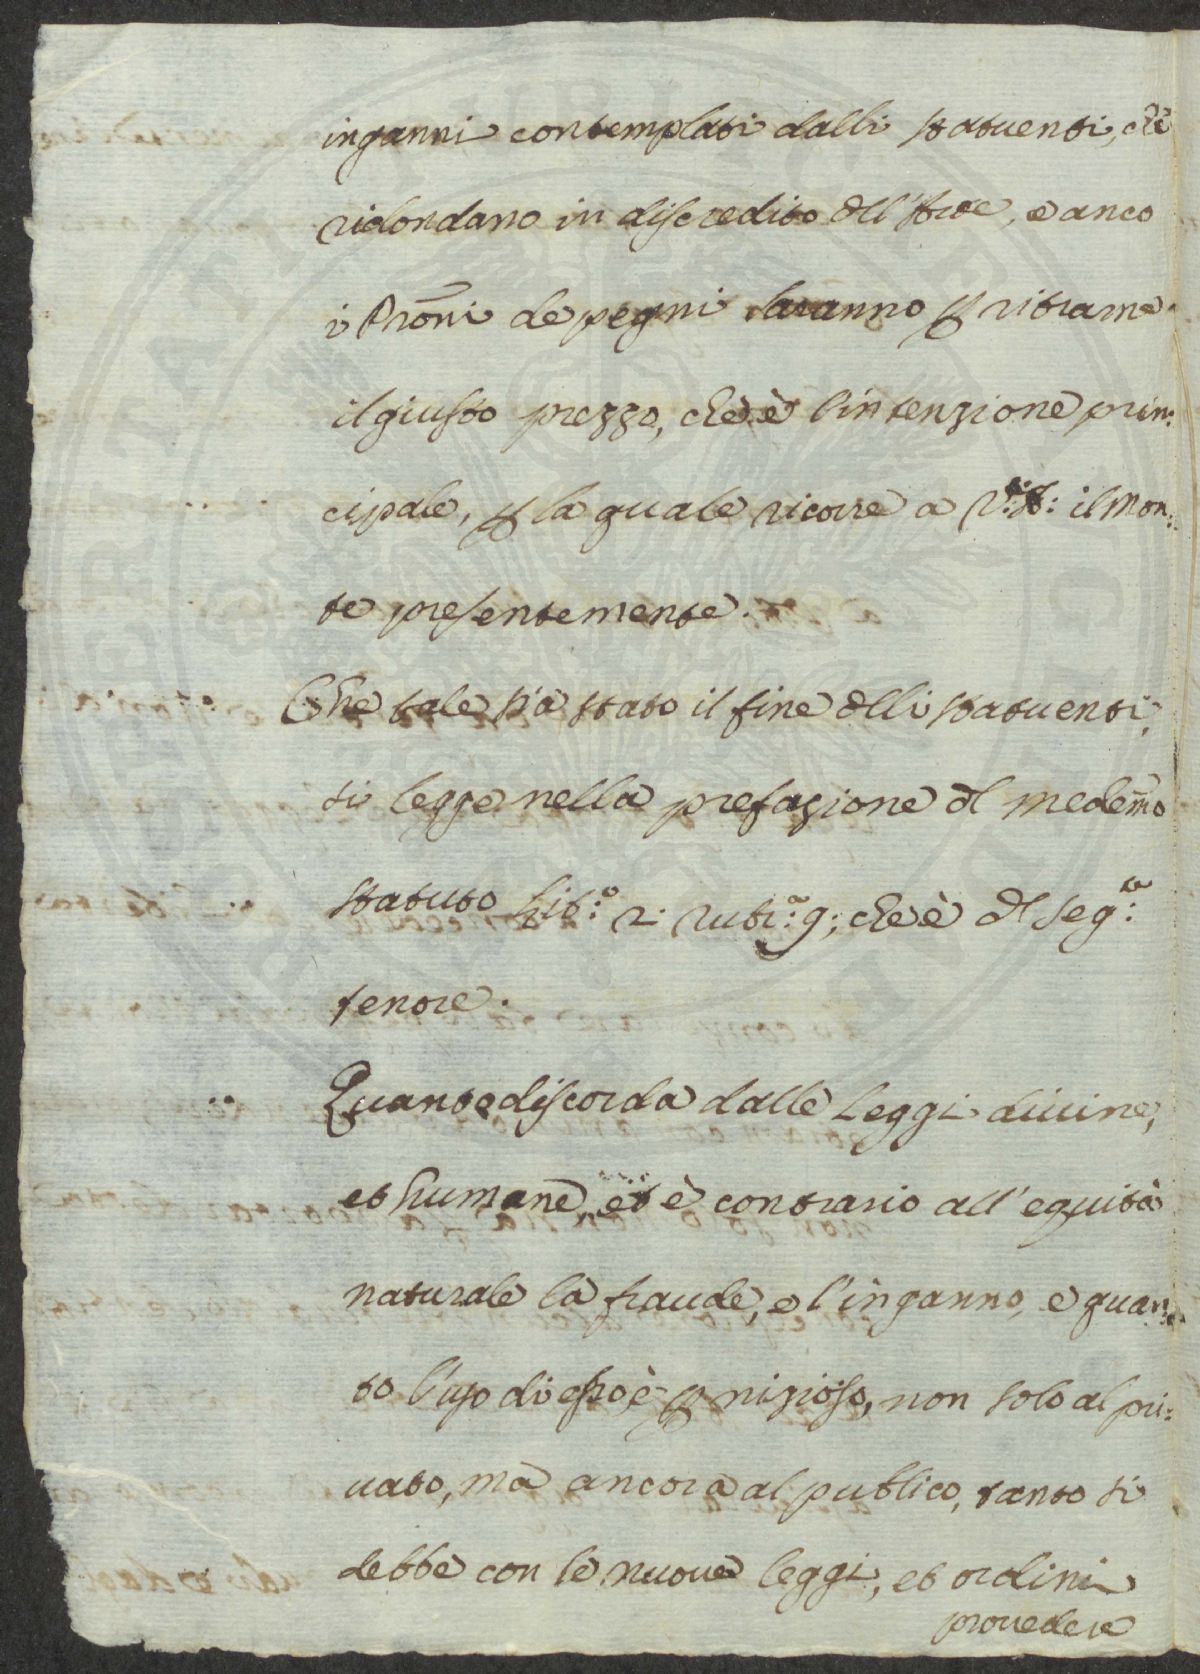 inganni contemplati dalli statuenti, che
ridondano in discredito dll'Arte, e anco
i Proni de pegni saranno p ritrarne
il giusto prezzo, che è l'intenzione prin:
cipale, p la quale ricorre a V:S: il Mon:
te presentemente.
Che tale sia stato il fine dlli statuenti,
si legge nella prefazione dl medemo
statuto Lib:o 2: rubr:a 9; che è dl seg:te
tenore.
Quanto discorda dalle Leggi diuine,
et humane, et è contrario all'equità
naturale la fraude, e l'inganno, e quan:
to l'uso di esso è pnizioso, non solo al pri:
uato, ma ancora al publico, tanto si
debbe con le nuoue leggi, et ordini
prouedere